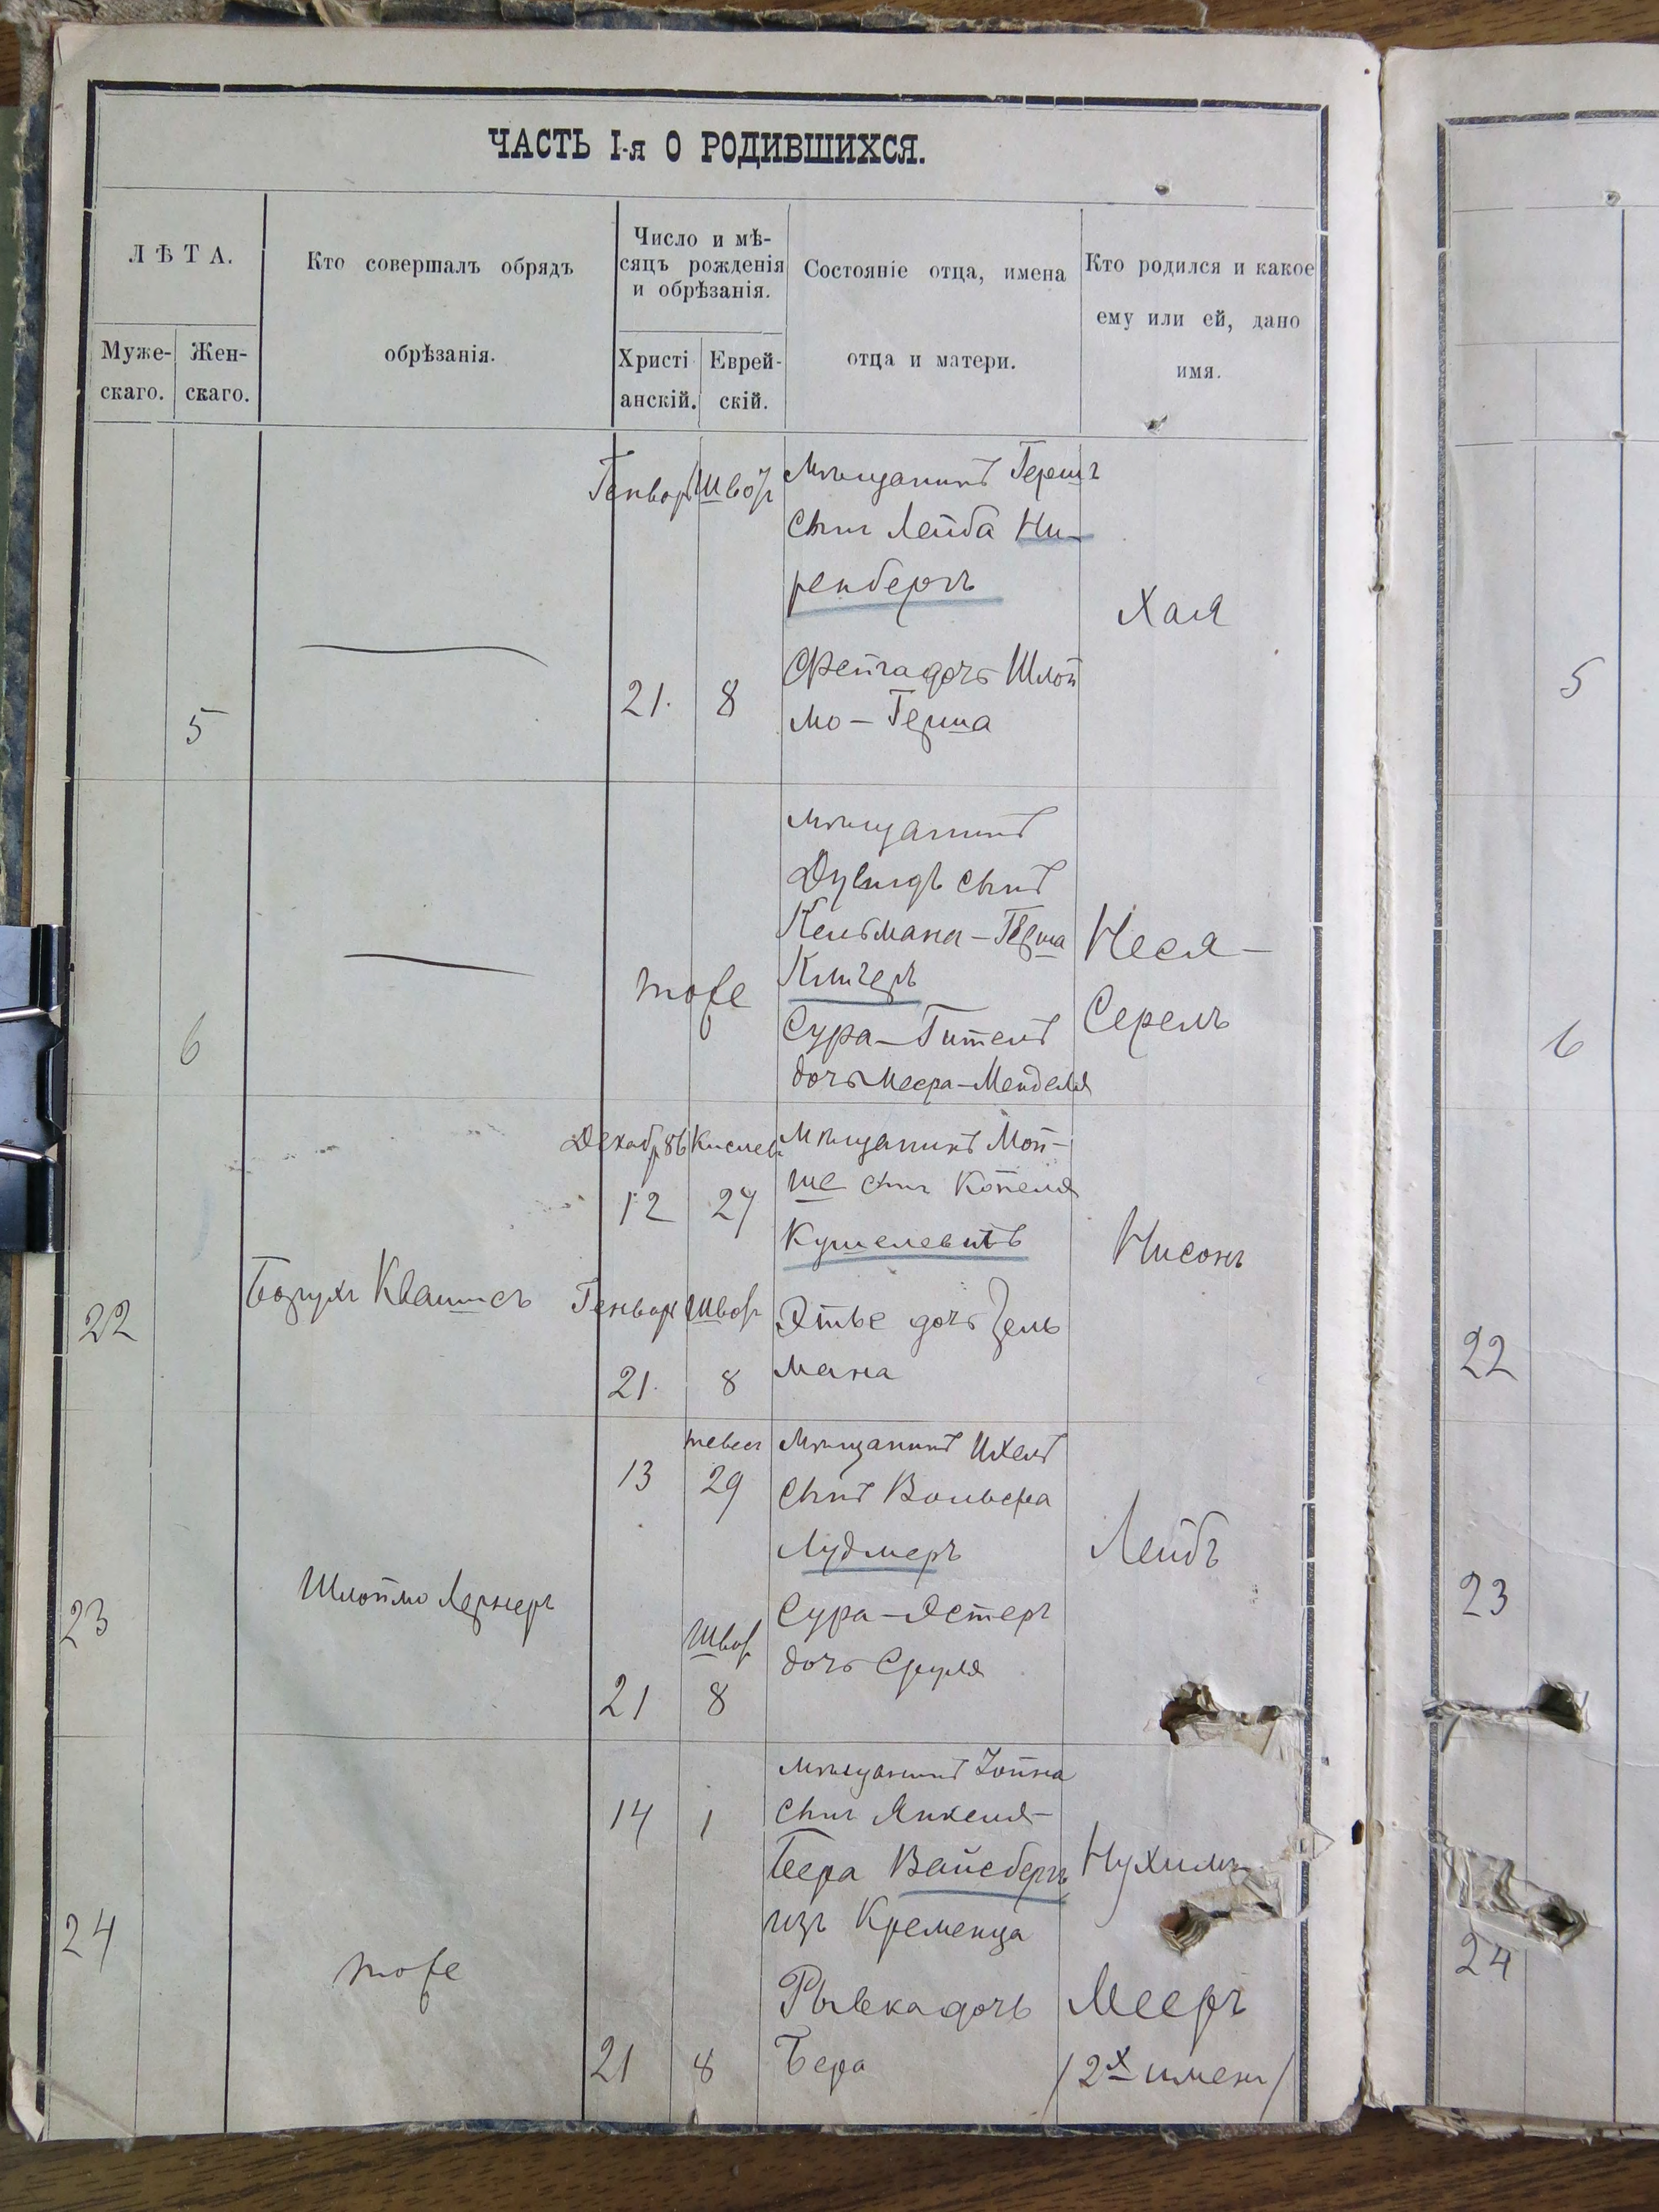 ЧАСТЬ I-я О РОДИВШИХСЯ.
ЛѢТА.
Муже-
скаго.
Жен-
скаго.
Кто совершалъ обрядъ
обрѣзанія.
Число и мѣ-
сяцъ рожденія
и обрѣзанія.
Христі
анскій.
Еврей-
скій.
Состояніе отца, имена
отца и матери.
Кто родился и какое
ему или ей, дано
имя.
5
Генвар
21.
Швот
8
Мѣщанинъ Гершъ
сынъ Лейба Ни-
ренбергъ
Фейга дочь Шлой
мо-Герша
Хая
5
6
тоже
мѣщанинъ
Дувидъ сынъ
Кельмана-Герша
Клигеръ
Сура-Гитель
дочь Меера-Менделя
Неся-
Серель
6
22
Борухъ Квашисъ
Декабр 86
12
Генвар
21.
Кислев
27
Швот
8
Мѣщанинъ Мой-
ше сынъ Копеля
Кушелевитъ
Этье дочь Зель
мана
Нисонъ
22
23
Шлоймо Лернеръ
13
21
тевес
29
Швот
8
Мѣщанинъ Ихель
сынъ Вольфа
Лудмеръ
Сура-Эстеръ
дочь Сруля
Лейбъ
23
24
тоже
14
21
1
8
мѣщанинъ Іойна
сынъ Янкеля-
Бера Вайсбергъ
изъ Кременца
Рывка дочь
Бера
Нухимъ
Мееръ
/2х имен/
24